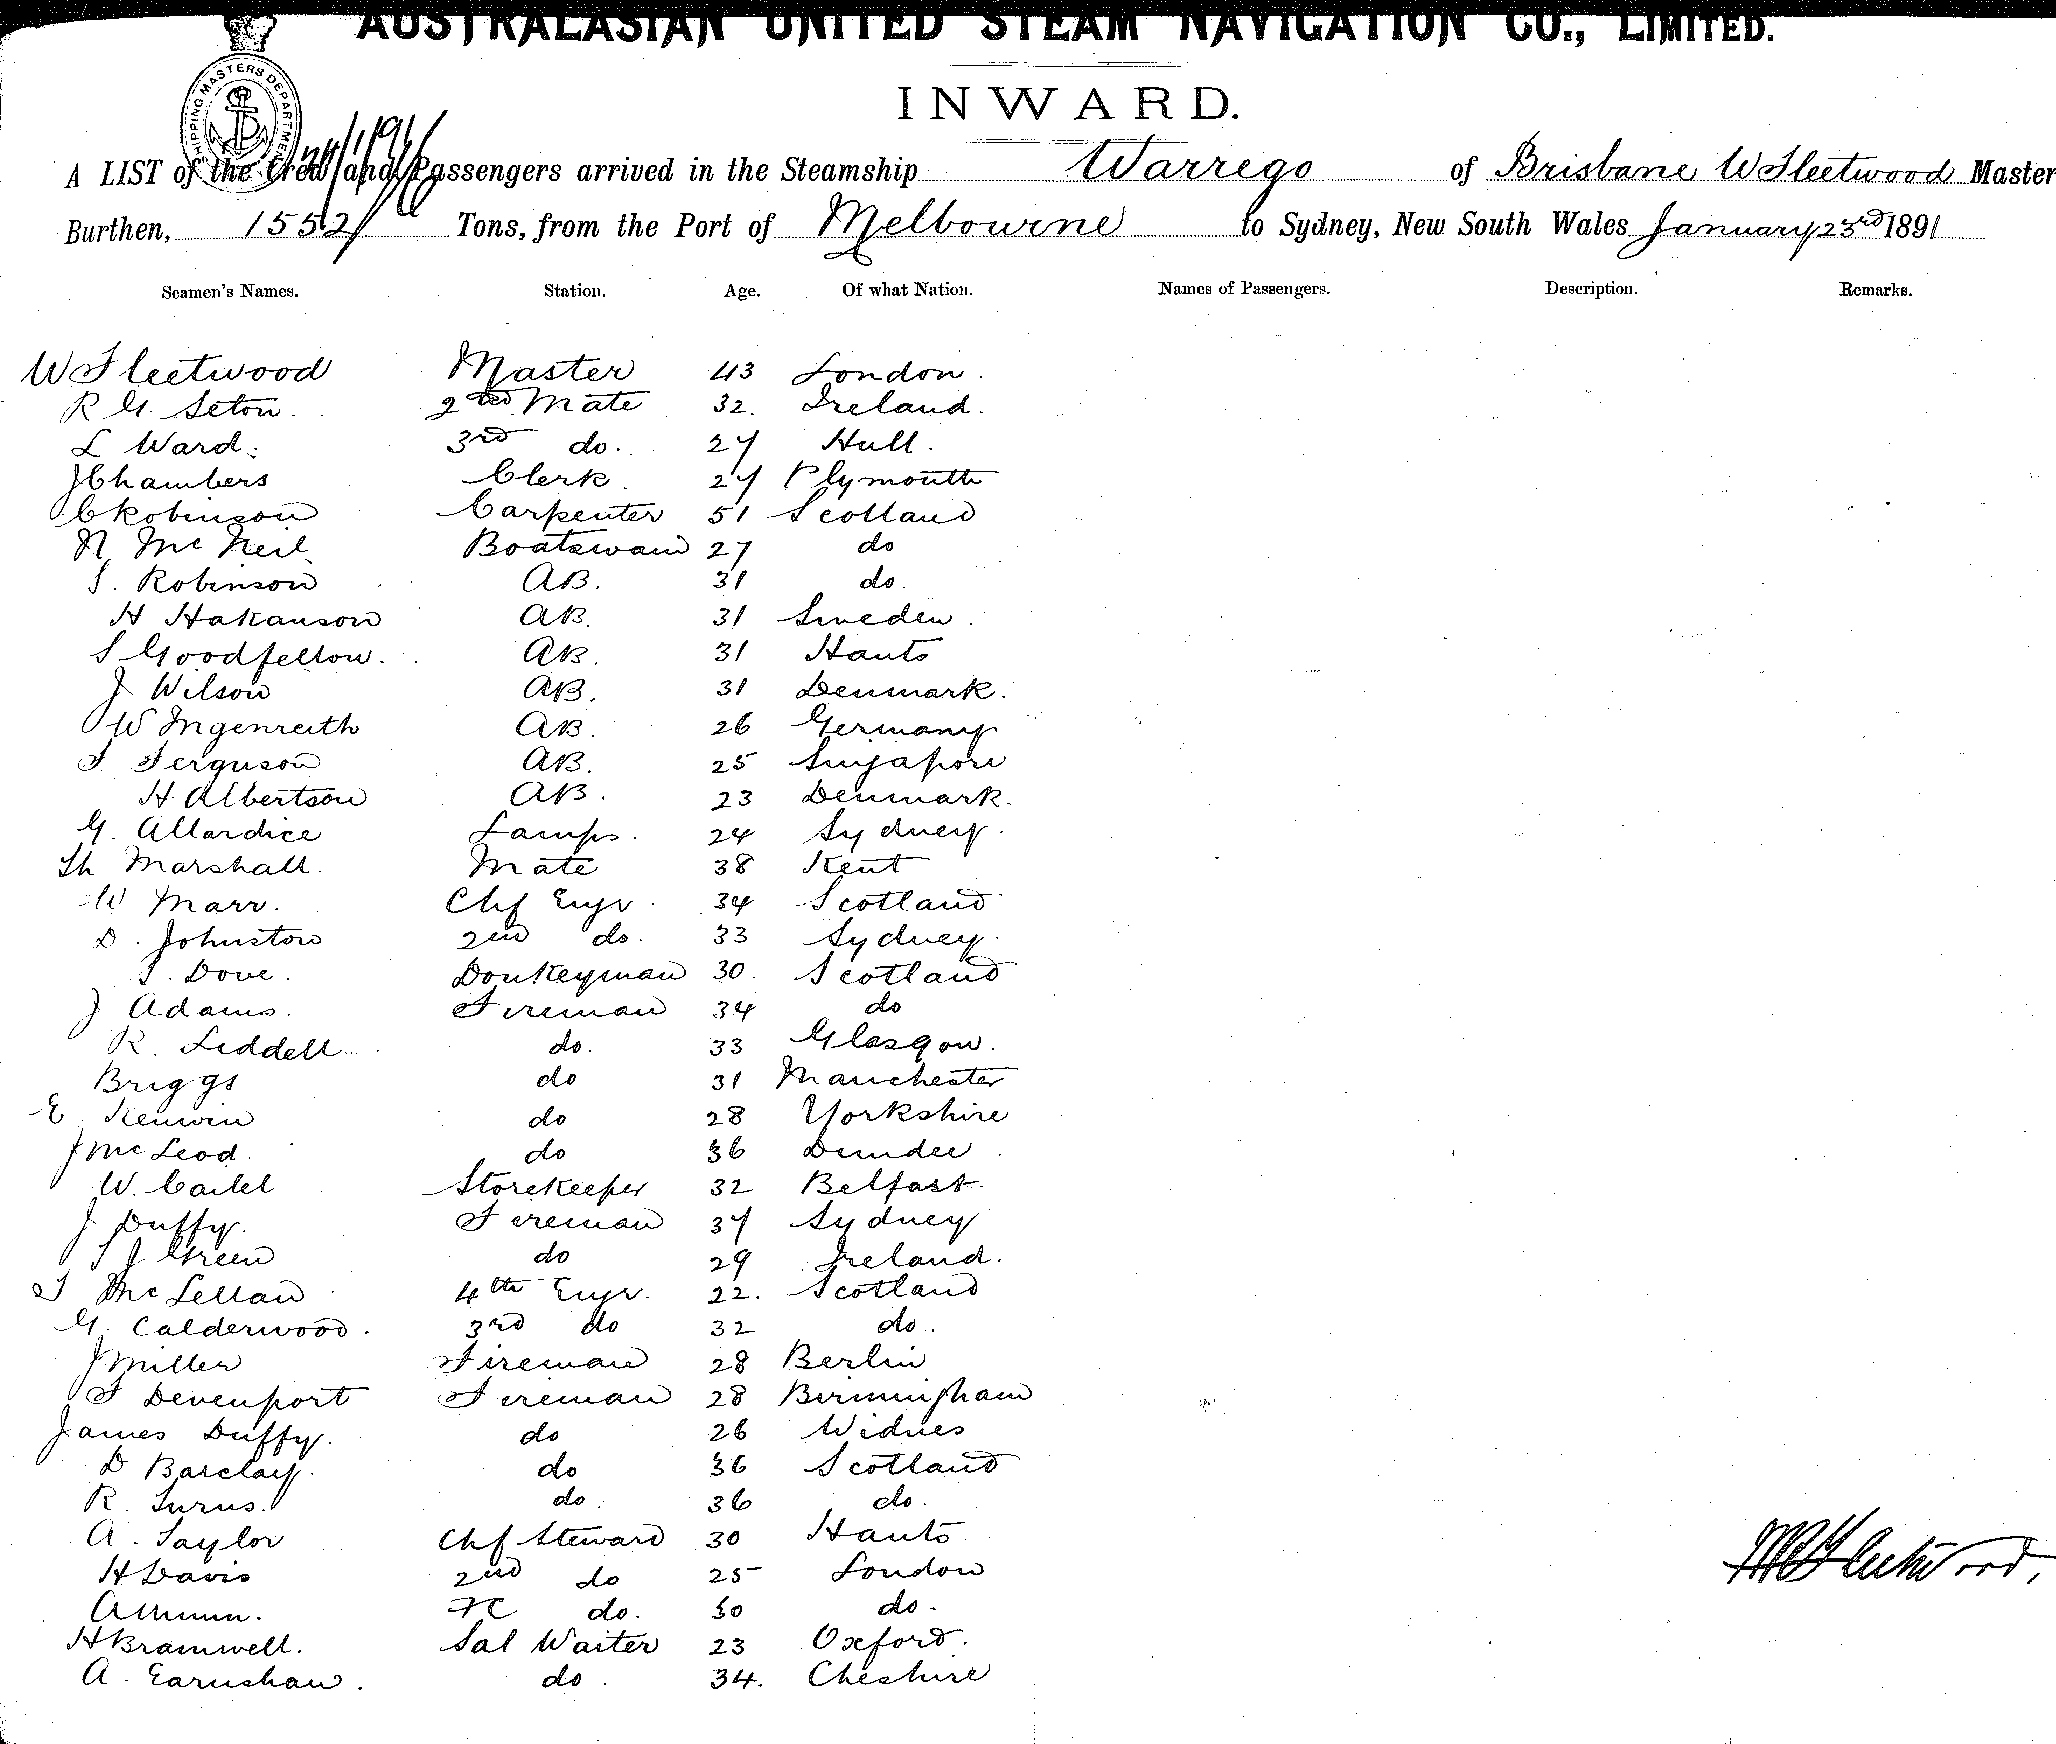 AUSTRALASIAN UNITED STEAM NAVIGATION CO., LIMITED.
INWARD.
SHIPPING MASTERS DEPARTMENT
A LIST of the Crew and Passengers arrived in the Steamship Warrego of Brisbane W Fleetwood Master
Burthen, 1552 Tons, from the Port of Melbourne to Sydney, New South Wales January 23rd 1891
Seamen's Names. Station. Age. Of what Nation. Names of Passengers. Description. Remarks.
W Fleetwood Master 43 London.
R G. Seton. 2nd Mate 32. Ireland.
L Ward. 3rd do. 27 Hull.
J Chambers Clerk. 27 Plymouth
C Robinson Carpenter 51 Scotland
N Mc Neil Boatswain 27 do
S. Robinson AB. 31 do.
H Hakanson AB. 31 Sweden.
S Goodfellow. AB. 31 Hants
J Wilson AB. 31 Denmark.
W Ingenreith AB. 26 Germany
F Ferguson AB. 25 Singapore
H Albertson AB. 23 Denmark.
G. Allardice Lamps. 24 Sydney.
Th Marshall. Mate 38 Kent
W Marr. Chf Engr. 34 Scotland
D. Johnston 2nd do. 33 Sydney.
S. Dove. Donkeyman 30. Scotland
J Adams. Fireman 34 do
R. Liddell do. 33 Glasgow.
Briggs do 31 Manchester
E Kenwin do 28 Yorkshire
J Mc Leod. do 36 Dundee.
W. Storekeeper 32 Belfast.
J Duffy. Fireman 37 Sydney
S J Green do 29 Ireland.
Mc Lellan 4th Engr. 22. Scotland
G. Calderwood. 3rd do 32 do.
J Miller Fireman 28 Berlin
F Devenport Fireman 28 Birmingham
James Duffy. do 26 Widnes
D Barclay. do 36 Scotland
R. do. 36 do.
A. Taylor Chf Steward 30 Hants
H Davis 2nd do 25 London
do. 30 do.
H Bramwell. Sal Waiter 23 Oxford.
A. Earnshaw. do. 34. Cheshire
W Fleetwood,